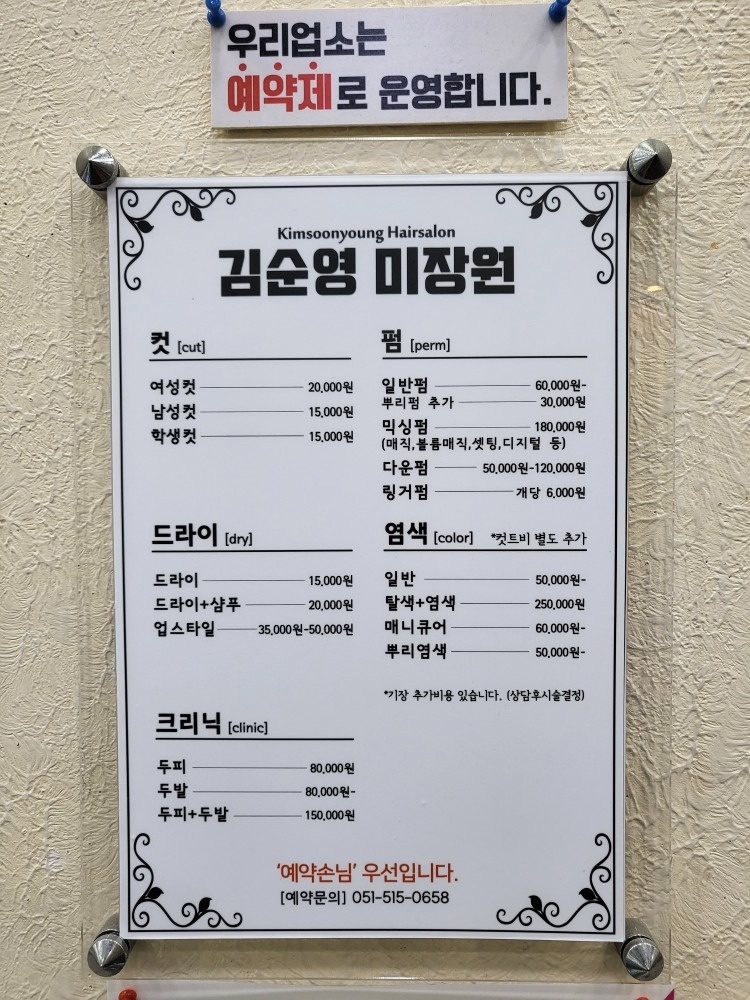 우리업소는
예약제로 운영합니다.
Kimsoonyoung Hairsalon
김순영 미장원
컷 [cut]
여성컷 20,000원
남성컷 15,000원
학생컷 15,000원
펌 [perm]
일반펌 60,000원-
뿌리펌 추가 30,000원
믹싱펌 180,000원
(매직,볼륨매직,셋팅,디지털 등)
다운펌 50,000원-120,000원
링거펌 개당 6,000원
드라이 [dry]
드라이 15,000원
드라이+샴푸 20,000원
업스타일 35,000원-50,000원
염색 [color] *컷트비 별도 추가
일반 50,000원-
탈색+염색 250,000원
매니큐어 60,000원-
뿌리염색 50,000원-
*기장 추가비용 있습니다. (상담후시술결정)
크리닉 [clinic]
두피 80,000원
두발 80,000원-
두피+두발 150,000원
'예약손님' 우선입니다.
[예약문의] 051-515-0658